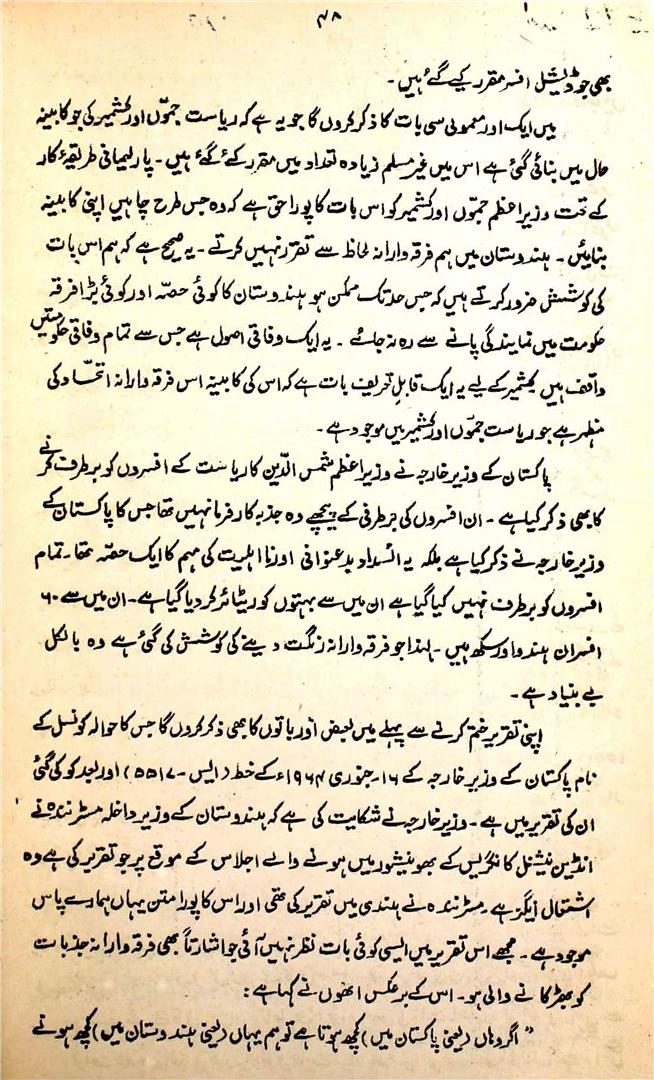 ۴۸
بھی جوڈیشل افسر مقرر کیے گئے ہیں۔
میں ایک اور معمولی سی بات کا ذکر کروں گا جو یہ ہے کہ ریاست جموّں اور کشمیر کی جو کابینہ
حال میں بنائی گئی ہے اس میں غیر مسلم زیادہ تعداد میں مقرر کئے گئے ہیں۔ پارلیمانی طریقۂ کار
کے تحت وزیر اعظم جموّں اور کشمیر کو اس بات کا پورا حق ہے کہ وہ جس طرح چاہیں اپنی کابینہ
بنائیں۔ ہندوستان میں ہم فرقہ وارانہ لحاظ سے تقرر نہیں کرتے۔ یہ صحیح ہے کہ ہم اس بات
کی کوشش ضرور کرتے ہیں کہ جس حد تک ممکن ہو ہندوستان کا کوئی حصّہ اور کوئی بڑا فرقہ
حکومت میں نمایندگی پانے سے رہ نہ جائے۔ یہ ایک وفاقی اصول ہے جس سے تمام وفاقی حکومتیں
واقف ہیں۔ کشمیر کے لیے یہ ایک قابلِ تعریف بات ہے کہ اس کی کابینہ اس فرقہ وارانہ اتحّاد کی
مظہر ہے جو ریاست جموّں اور کشمیر میں موجود ہے۔
پاکستان کے وزیر خارجہ نے وزیر اعظم شمس الدّین کا ریاست کے افسروں کو برطرف کرنے
کا بھی ذکر کیا ہے۔ ان افسروں کی برطرفی کے پیچھے وہ جذبہ کار فرما نہیں تھا جس کا پاکستان کے
وزیر خارجہ نے ذکر کیا ہے بلکہ یہ انسداد بدعنوانی اور نااہلیت کی مہم کا ایک حصّہ تھا۔ تمام
افسروں کو برطرف نہیں کیا گیا ہے ان میں سے بہتوں کو ریٹائر کر دیا گیا ہے۔ ان میں سے ۶۰
افسران ہندو اور سکھ ہیں۔ لہٰذا جو فرقہ وارانہ رنگت دینے کی کوشش کی گئی ہے وہ بالکل
بے بنیاد ہے۔
اپنی تقریر ختم کرنے سے پہلے میں بعض اور باتوں کا بھی ذکر کروں گا جس کا حوالہ کونسل کے
نام پاکستان کے وزیر خارجہ کے ۱۶۔ جنوری ۱۹۶۴ء کے خط (ایس۔ ۵۵۱۷) اور بعد کو کی گئی
ان کی تقریر میں ہے۔ وزیر خارجہ نے شکایت کی ہے کہ ہندوستان کے وزیر داخلہ مسٹر نندہ نے
انڈین نیشنل کانگریس کے بھوبنیشور میں ہونے والے اجلاس کے موقع پر جو تقریر کی ہے وہ
اشتعال انگیز ہے۔ مسٹر نندہ نے ہندی میں تقریر کی تھی اور اس کا پورا متن یہاں ہمارے پاس
موجود ہے۔ مجھے اس تقریر میں ایسی کوئی بات نظر نہیں آئی جو اشارتاً بھی فرقہ وارانہ جذبات
کو بھڑکانے والی ہو۔ اس کے برعکس انھوں نے کہا ہے:
" اگر وہاں (یعنی پاکستان میں) کچھ ہوتا ہے تو ہم یہاں (یعنی ہندوستان میں) کچھ ہونے